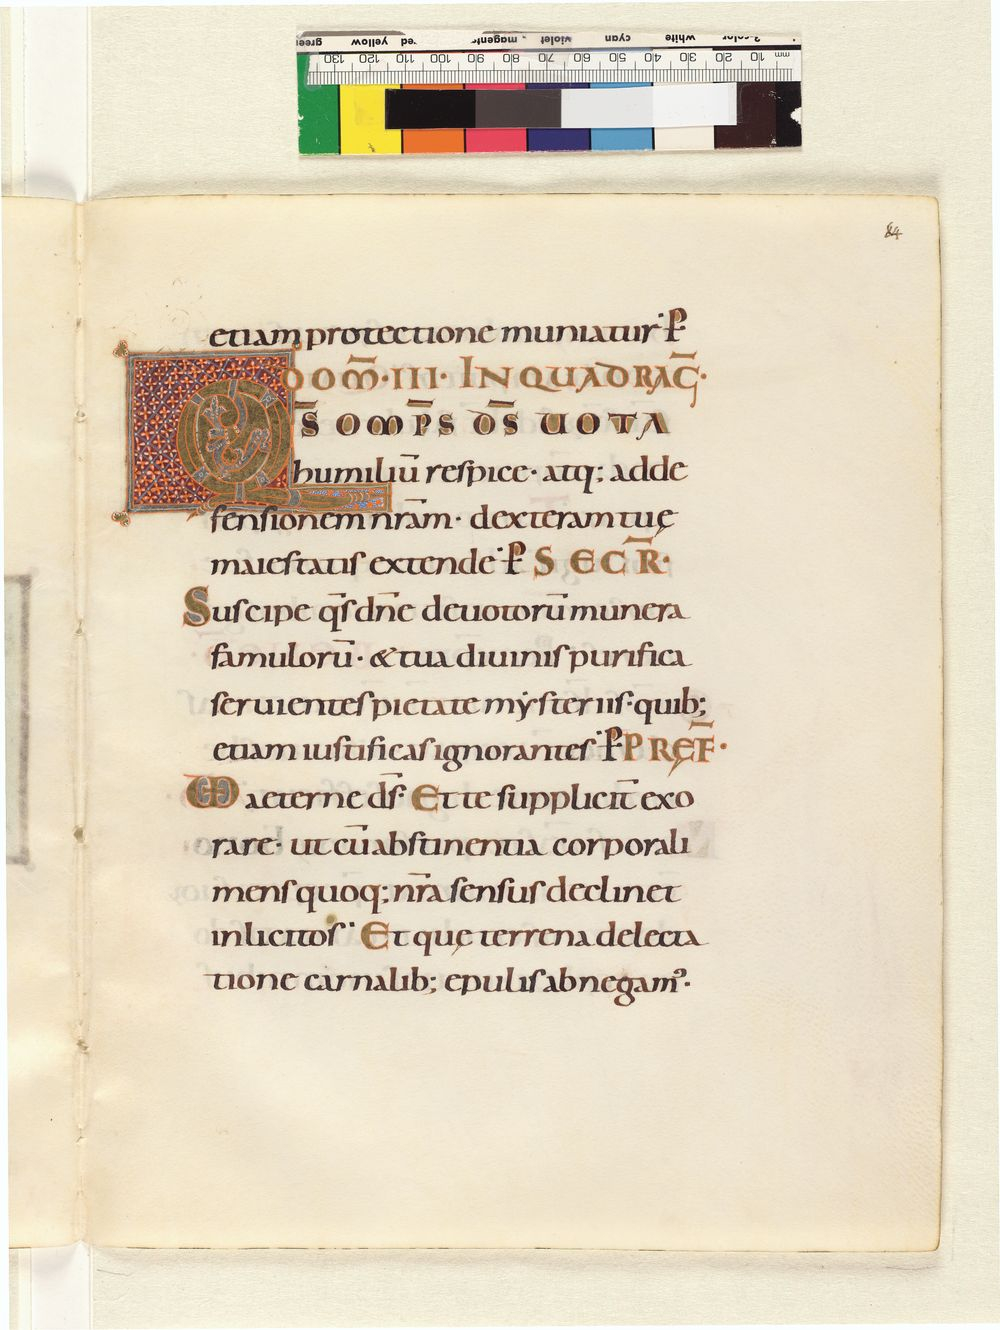 mm 10 20 30 40 50 60 70 80 90 100 110 120 130
white cyan violet magenta red yellow green
84
etiam protectione muniatur· P̄
DOM̄·III· IN QUADRAḠ·
Q S̄ OMP̄S D̄S UOTA
humiliū respice· atq; adde
fensionem nr̄am· dexteram tuę
maiestatis extende· P̄ SECR̄·
Suscipe q̄s dn̄e deuotorū munera
famulorū· & tua diuinis purifica
seruientes pietate mẏsteriis· quib;
etiam iustificas ignorantes· P̄ PRĘF̄·
VD aeterne ds̄· Et te suppliciт̄ exo
rare· ut cū abstinentia corporali
mens quoq; nr̄a sensus declinet
inlicitos· Et quę terrena delecta
tione carnalib; epulis abnegam᾽·